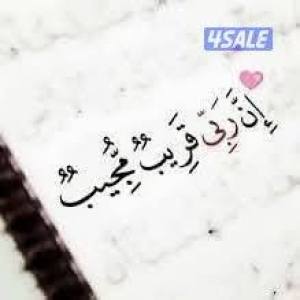 4SALE
إِنَّ رَبِّي قَرِيبٌ مُجِيبٌ